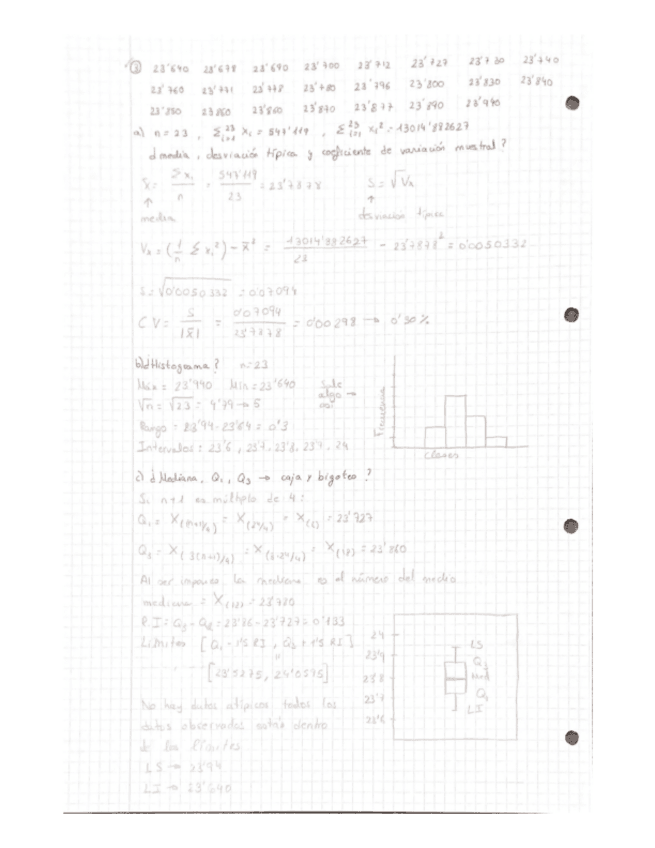 ③ 23'640 23'678 23'690 23'700 23'712 23'727 23'730 23'740
23'760 23'771 23'778 23'780 23'796 23'800 23'830 23'840
23'850 23'860 23'860 23'870 23'877 23'890 23'940
a) n = 23 , Σ²³ᵢ₌₁ Xᵢ = 547'119 , Σ²³ᵢ₌₁ xᵢ² = 13014'882627
¿ media, desviación típica y coeficiente de variación muestral ?
x̄ = Σxᵢ / n = 547'119 / 23 = 23'7878 S = √Vₓ
↑ ↑
media desviación típica
Vₓ = (1/n Σ xᵢ²) - x̄² = 13014'882627 / 23 - 23'7878² = 0'0050332
S = √0'0050332 = 0'07094
CV = S / |x̄| = 0'07094 / 23'7878 = 0'00298 → 0'30 %
b) ¿ Histograma ? n = 23
Máx = 23'940 Mín = 23'640 Sale
√n = √23 = 4'79 → 5 algo →
Rango = 23'94 - 23'64 = 0'3 así
Intervalos = 23'6 , 23'7 , 23'8 , 23'9 , 24
Frecuencia
clases
c) ¿ Mediana, Q₁, Q₃ → caja y bigotes ?
Si n+1 es múltiplo de 4 :
Q₁ = X₍ₙ₊₁/₄₎ = X₍₂₄/₄₎ = X₍₆₎ = 23'727
Q₃ = X₍₃₍ₙ₊₁₎/₄₎ = X₍₃·₂₄/₄₎ = X₍₁₈₎ = 23'860
Al ser impares la mediana es el número del medio
mediana = X₍₁₂₎ = 23'780
R.I = Q₃ - Q₁ = 23'86 - 23'727 = 0'133
Límites [Q₁ - 1'5 RI , Q₃ + 1'5 RI]
[23'5275, 24'0595]
No hay datos atípicos todos los
datos observados están dentro
de los límites
LS → 23'94
LI → 23'640
24
23'9
23'8
23'7
23'6
LS
Q₃
Med
Q₁
LI